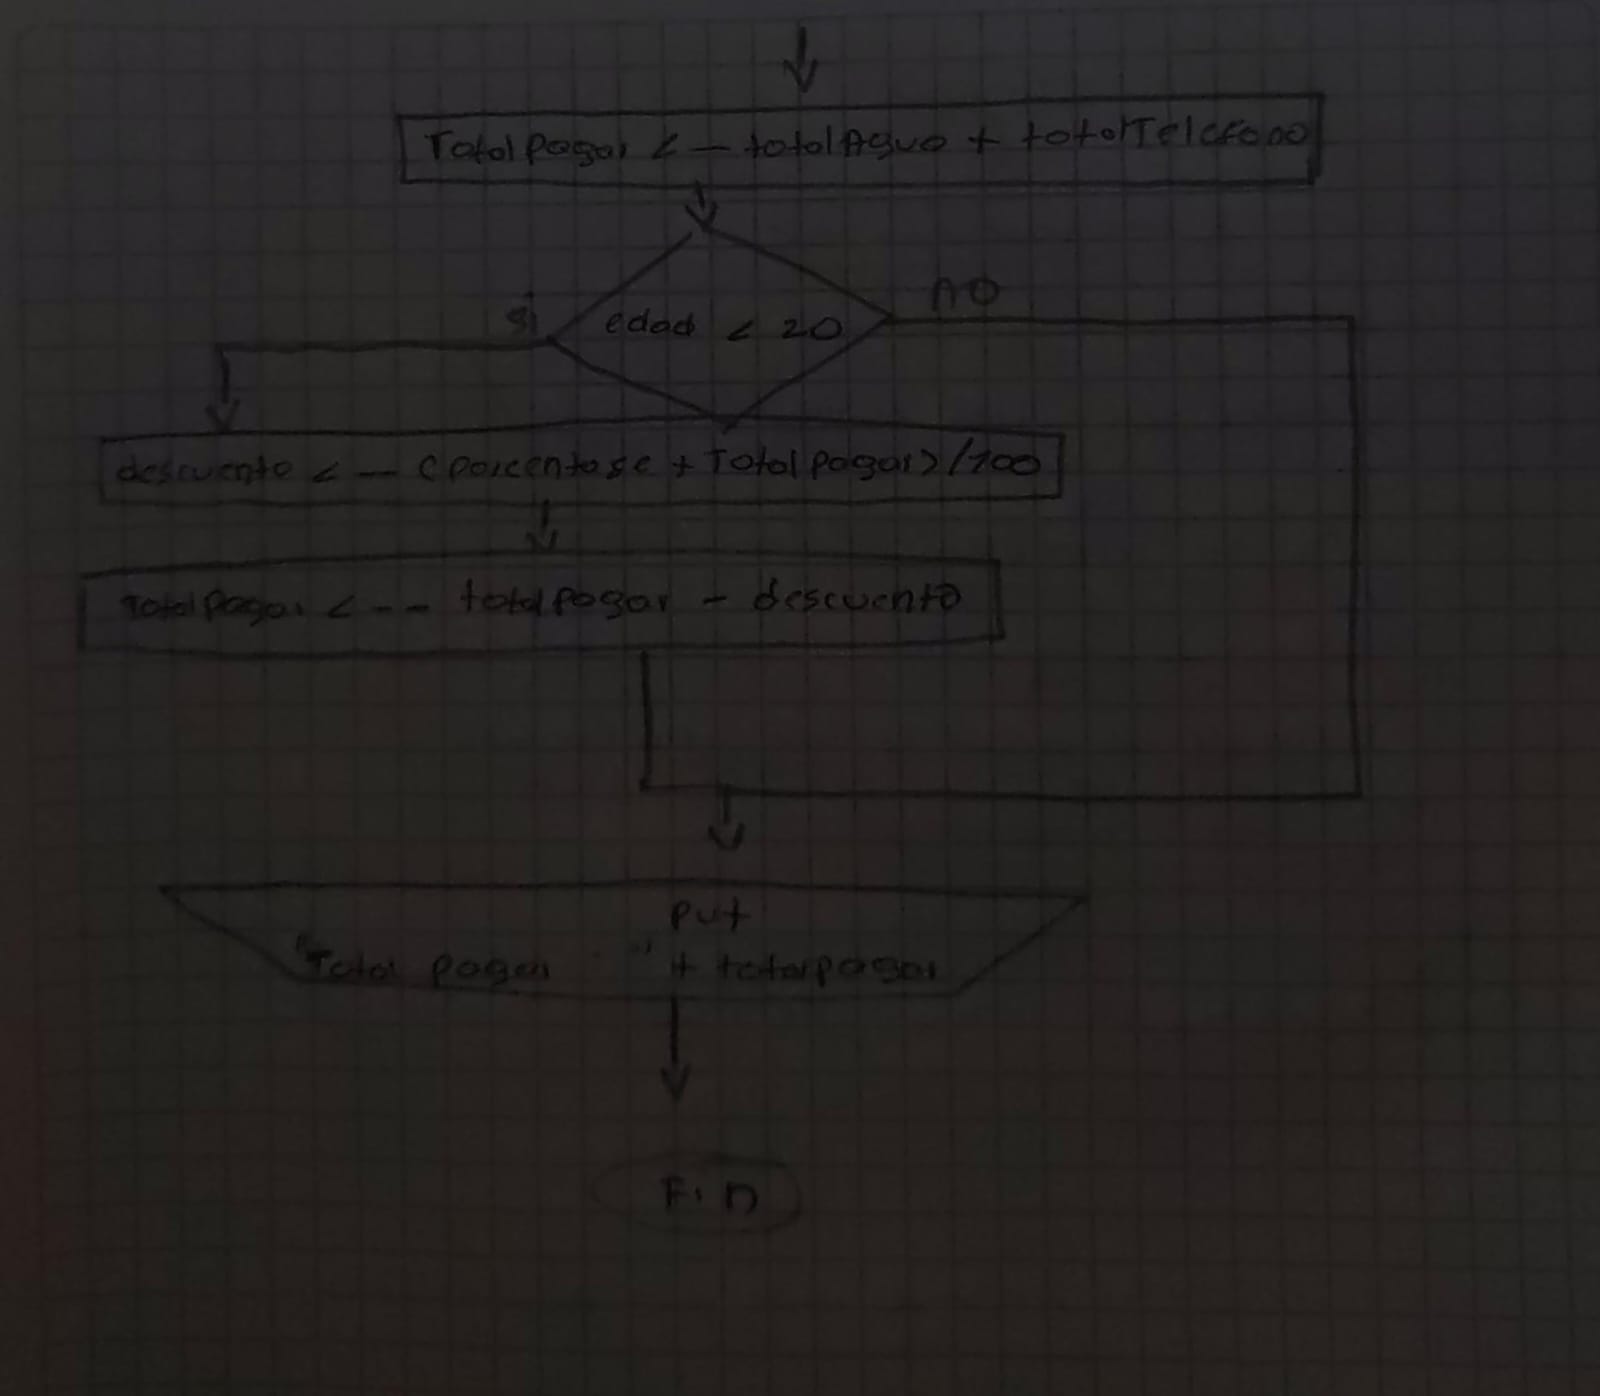 Totalpagar <- totalAgua + totalTelefono
si
edad < 20
no
descuento <- (porcentage + Totalpagar)/100
Totalpagar <-- totalpagar - descuento
put
"Total pagar " + totalpagar
Fin